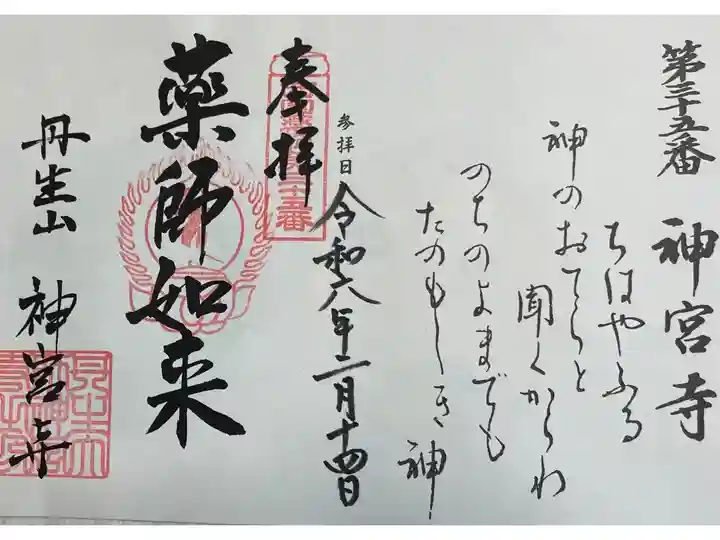 第三十五番 神宮寺
ちはやふる
神のおてらと
聞くからわ
のちのよまでも
たのもしき 神
参拝日 令和六年二月十四日
奉拝
薬師如来
丹生山 神宮寺